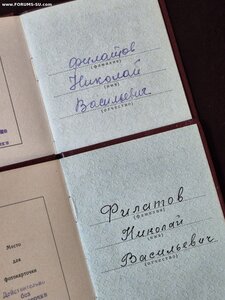 www.FORUMS-SU.com
Филатов
(фамилия)
Николай
(имя)
Васильевич
(отчество)
Филатов
(фамилия)
Николай
(имя)
Васильевич
(отчество)
Место
для
фотокарточки
Действительно
без